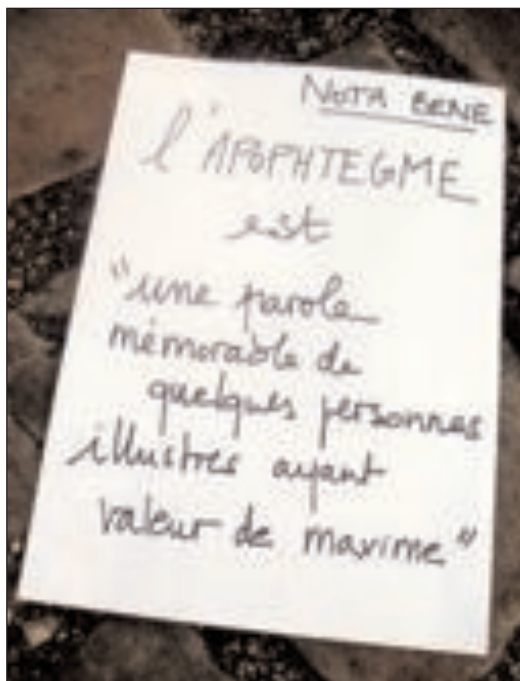 NOTA BENE
l'APOPHTEGME
est
"une parole
mémorable de
quelques personnes
illustres ayant
valeur de maxime"